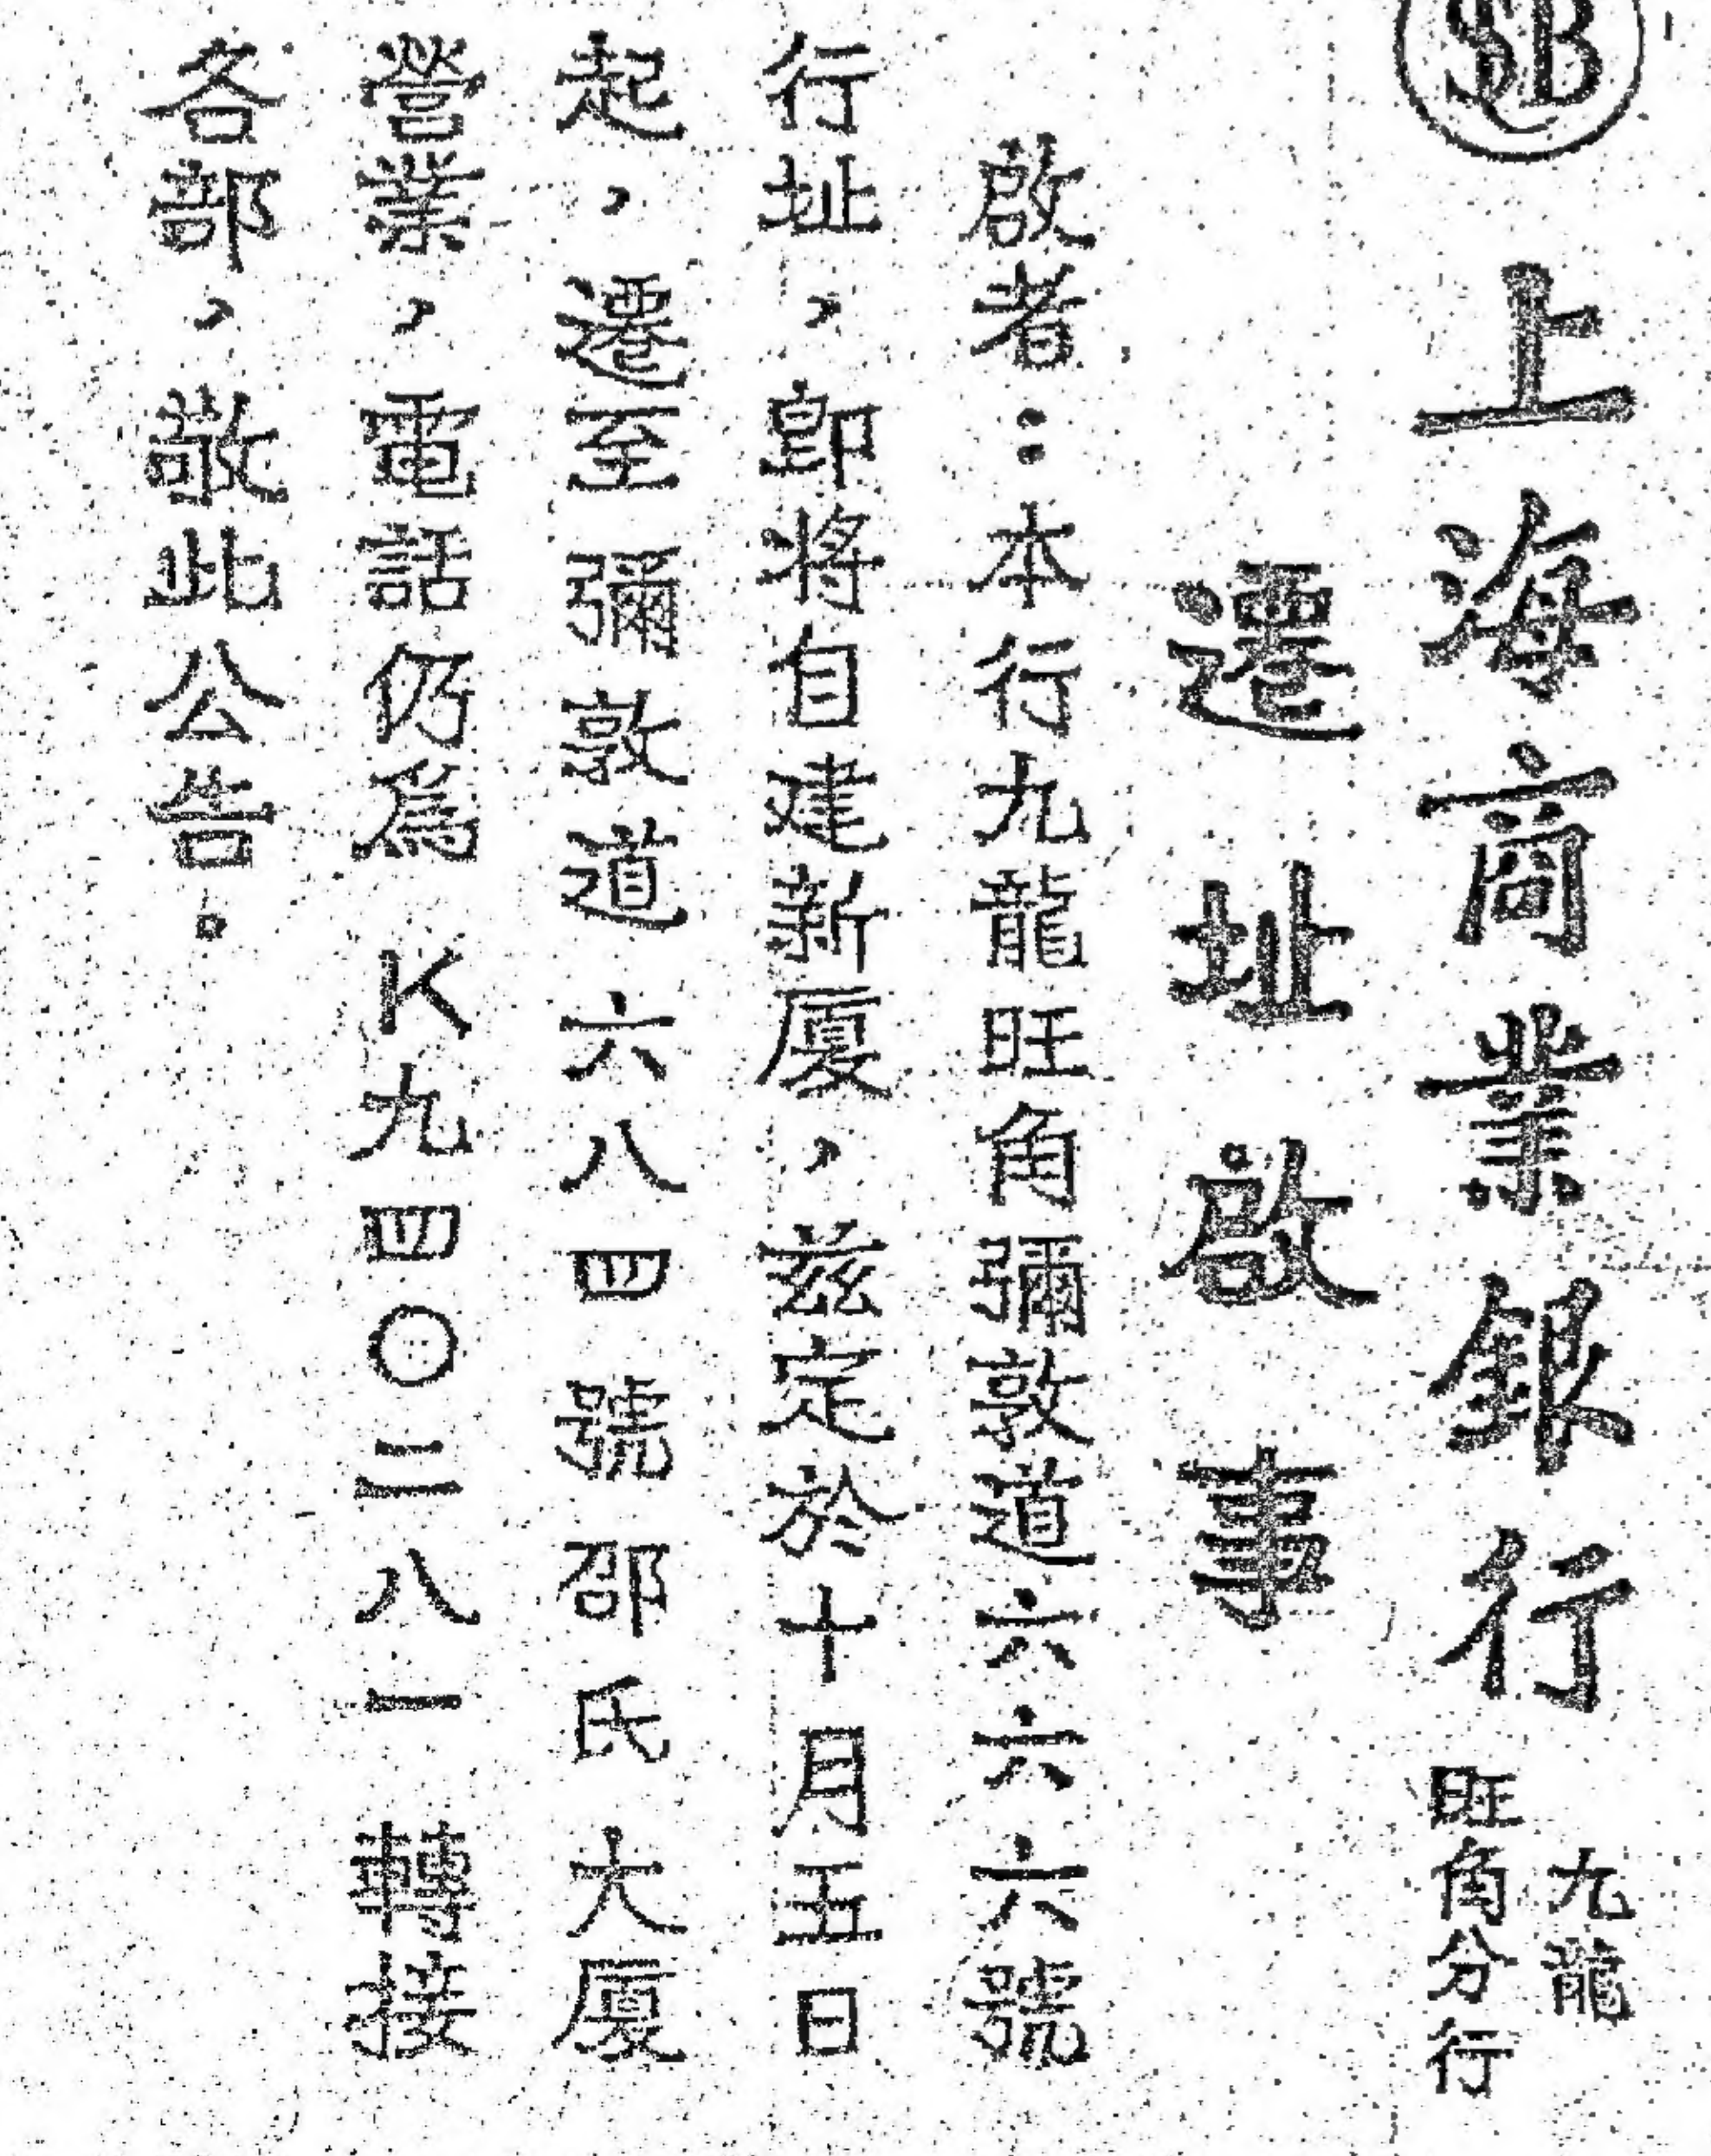 SCB
上海商業銀行
九龍
旺角分行
遷址啟事
啟者：本行九龍旺角彌敦道六六六號
行址，卽將自建新厦，茲定於十月五日
起，遷至彌敦道六八四號邵氏大厦
營業，電話仍爲K九四〇二八一轉接
各部，敬此公告。